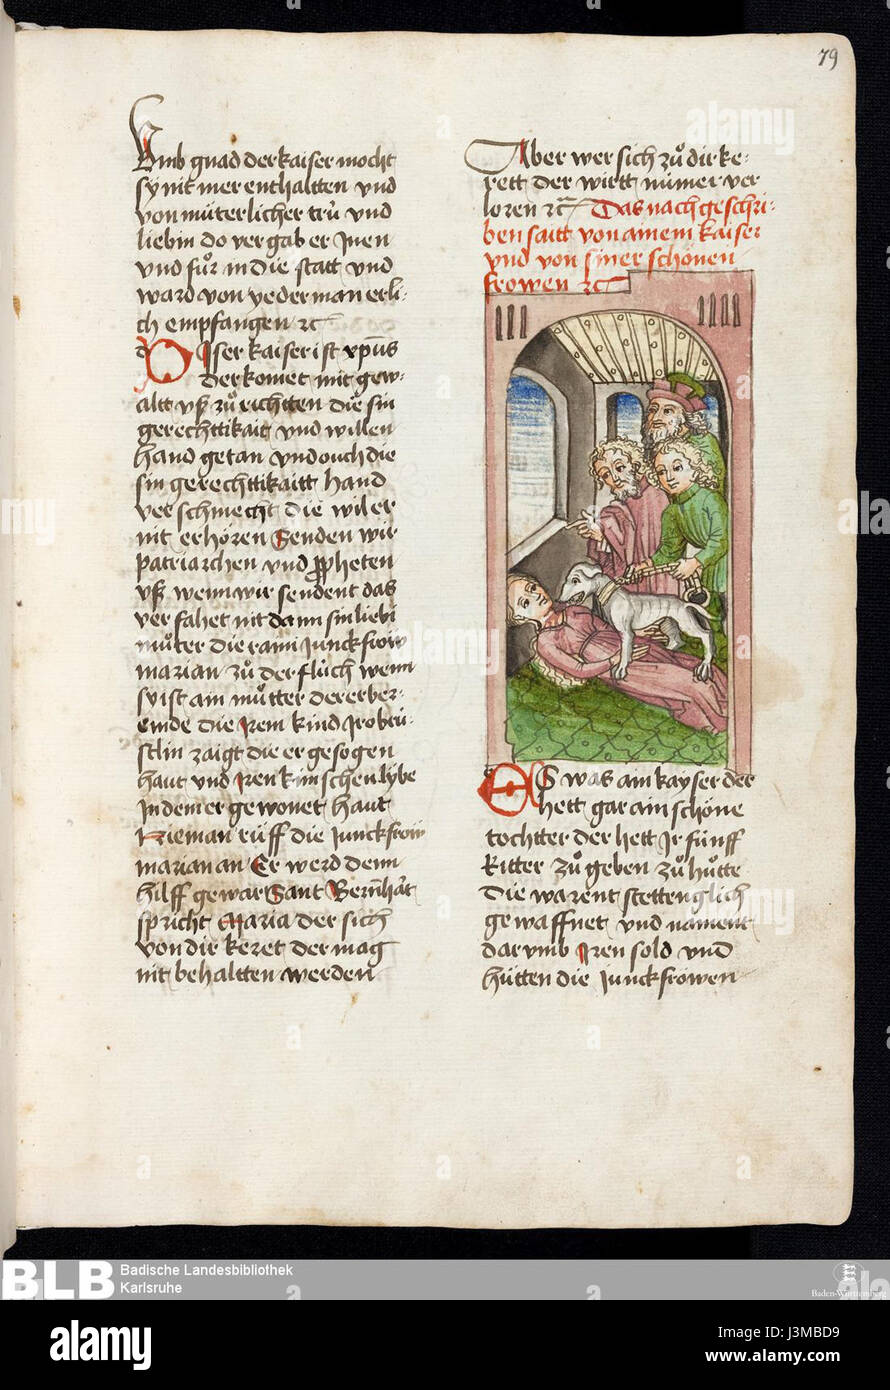 79
Umb gnad der kaiser mocht
sy nit mer enthaltten vnd
von müterlicher trů vnd
liebin do vergab er Inen
vnd fůr in die statt vnd
ward von yederman erli-
ch empfangen ꝛc
DIser kaiser ist xp̄us
der komet mit gew-
altt vß zů richtten die sin
gerechttikait vnd willen
hand getan vnd ouch die
sin gerechttikaitt hand
verschmecht die wil er
nit erhören Senden wir
patriarchen vnd propheten
vß wenn wir sendent das
verfahet nit dann sin liebi
můter die raini Junckfrow
marian zů der flůch wenn
sy ist ain můtter der erber-
emde die Irem kind Ir obrü-
stlin zaigt die er gesogen
haut vnd Iren kinschen lybe
In dem er gewonet haut
Nieman rüff die Junckfrow
marian an Er werd denn
hilff gewar Sant Bernhāt
spricht Maria der sich
von dir keret der mag
nit behaltten werden
Aber wer sich zů dir ke-
rett der wirtt nümer ver
loren ꝛc Das nach geschri-
ben saitt von ainem kaiser
vnd von siner schönen
frowen ꝛc
ES was ain kayser der
hett gar ain schöne
tochtter der hett Ir fünff
Ritter zů geben zů hůtte
die warent stettenglich
gewaffnet vnd nament
darvmb Iren sold vnd
hütten die Junckfrowen
BLB Badische Landesbibliothek
Karlsruhe
Baden-Württemberg
alamy
Image ID: J3MBD9
www.alamy.com